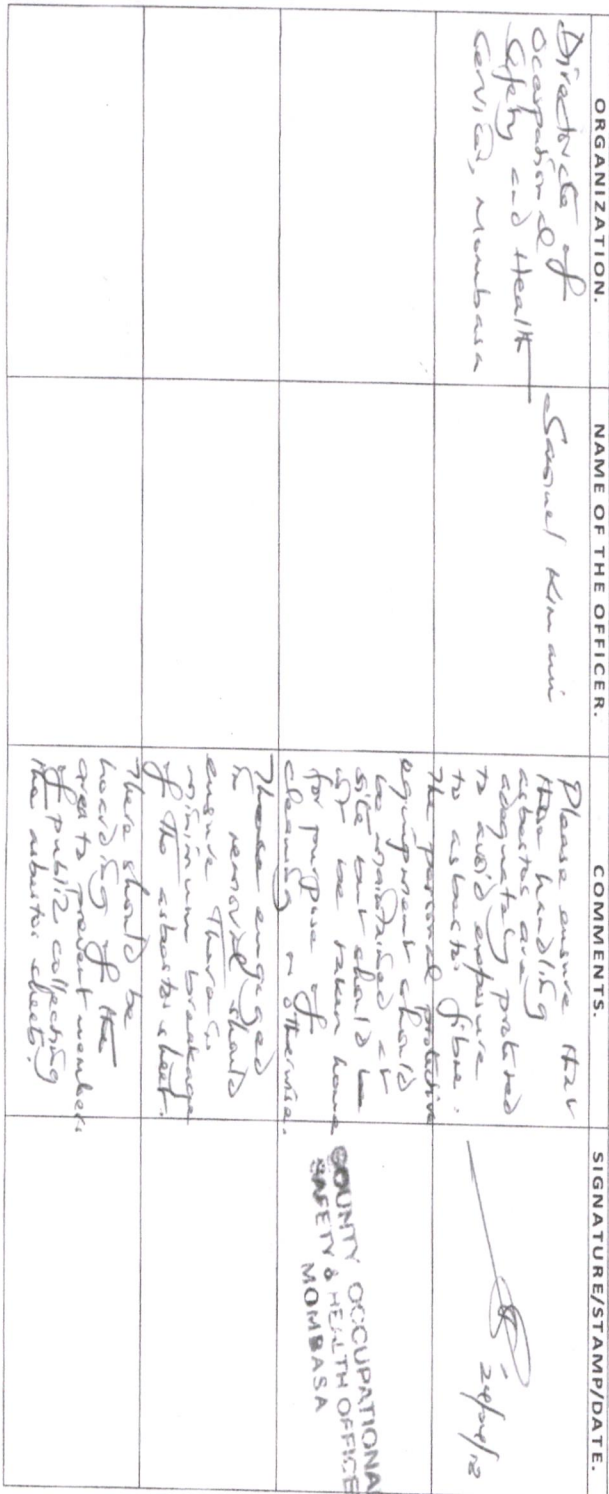 ORGANIZATION.
NAME OF THE OFFICER.
COMMENTS.
SIGNATURE/STAMP/DATE.
Directorate of
Occupational
Safety and Health
Services, Mombasa
Samuel Kimani
Please ensure that
those handling
asbestos are
adequately protected
to avoid exposure
to asbestos fibre.
The personal protective
equipment should
be maintained at
site but should be
not be taken home
for purpose of
cleaning or otherwise.
Those engaged
in removal should
ensure there is
minimum breakage
of the asbestos sheet.
There should be
hoarding of the
area to prevent members
of public collecting
the asbestos sheets.
COUNTY OCCUPATIONAL
SAFETY & HEALTH OFFICE
MOMBASA